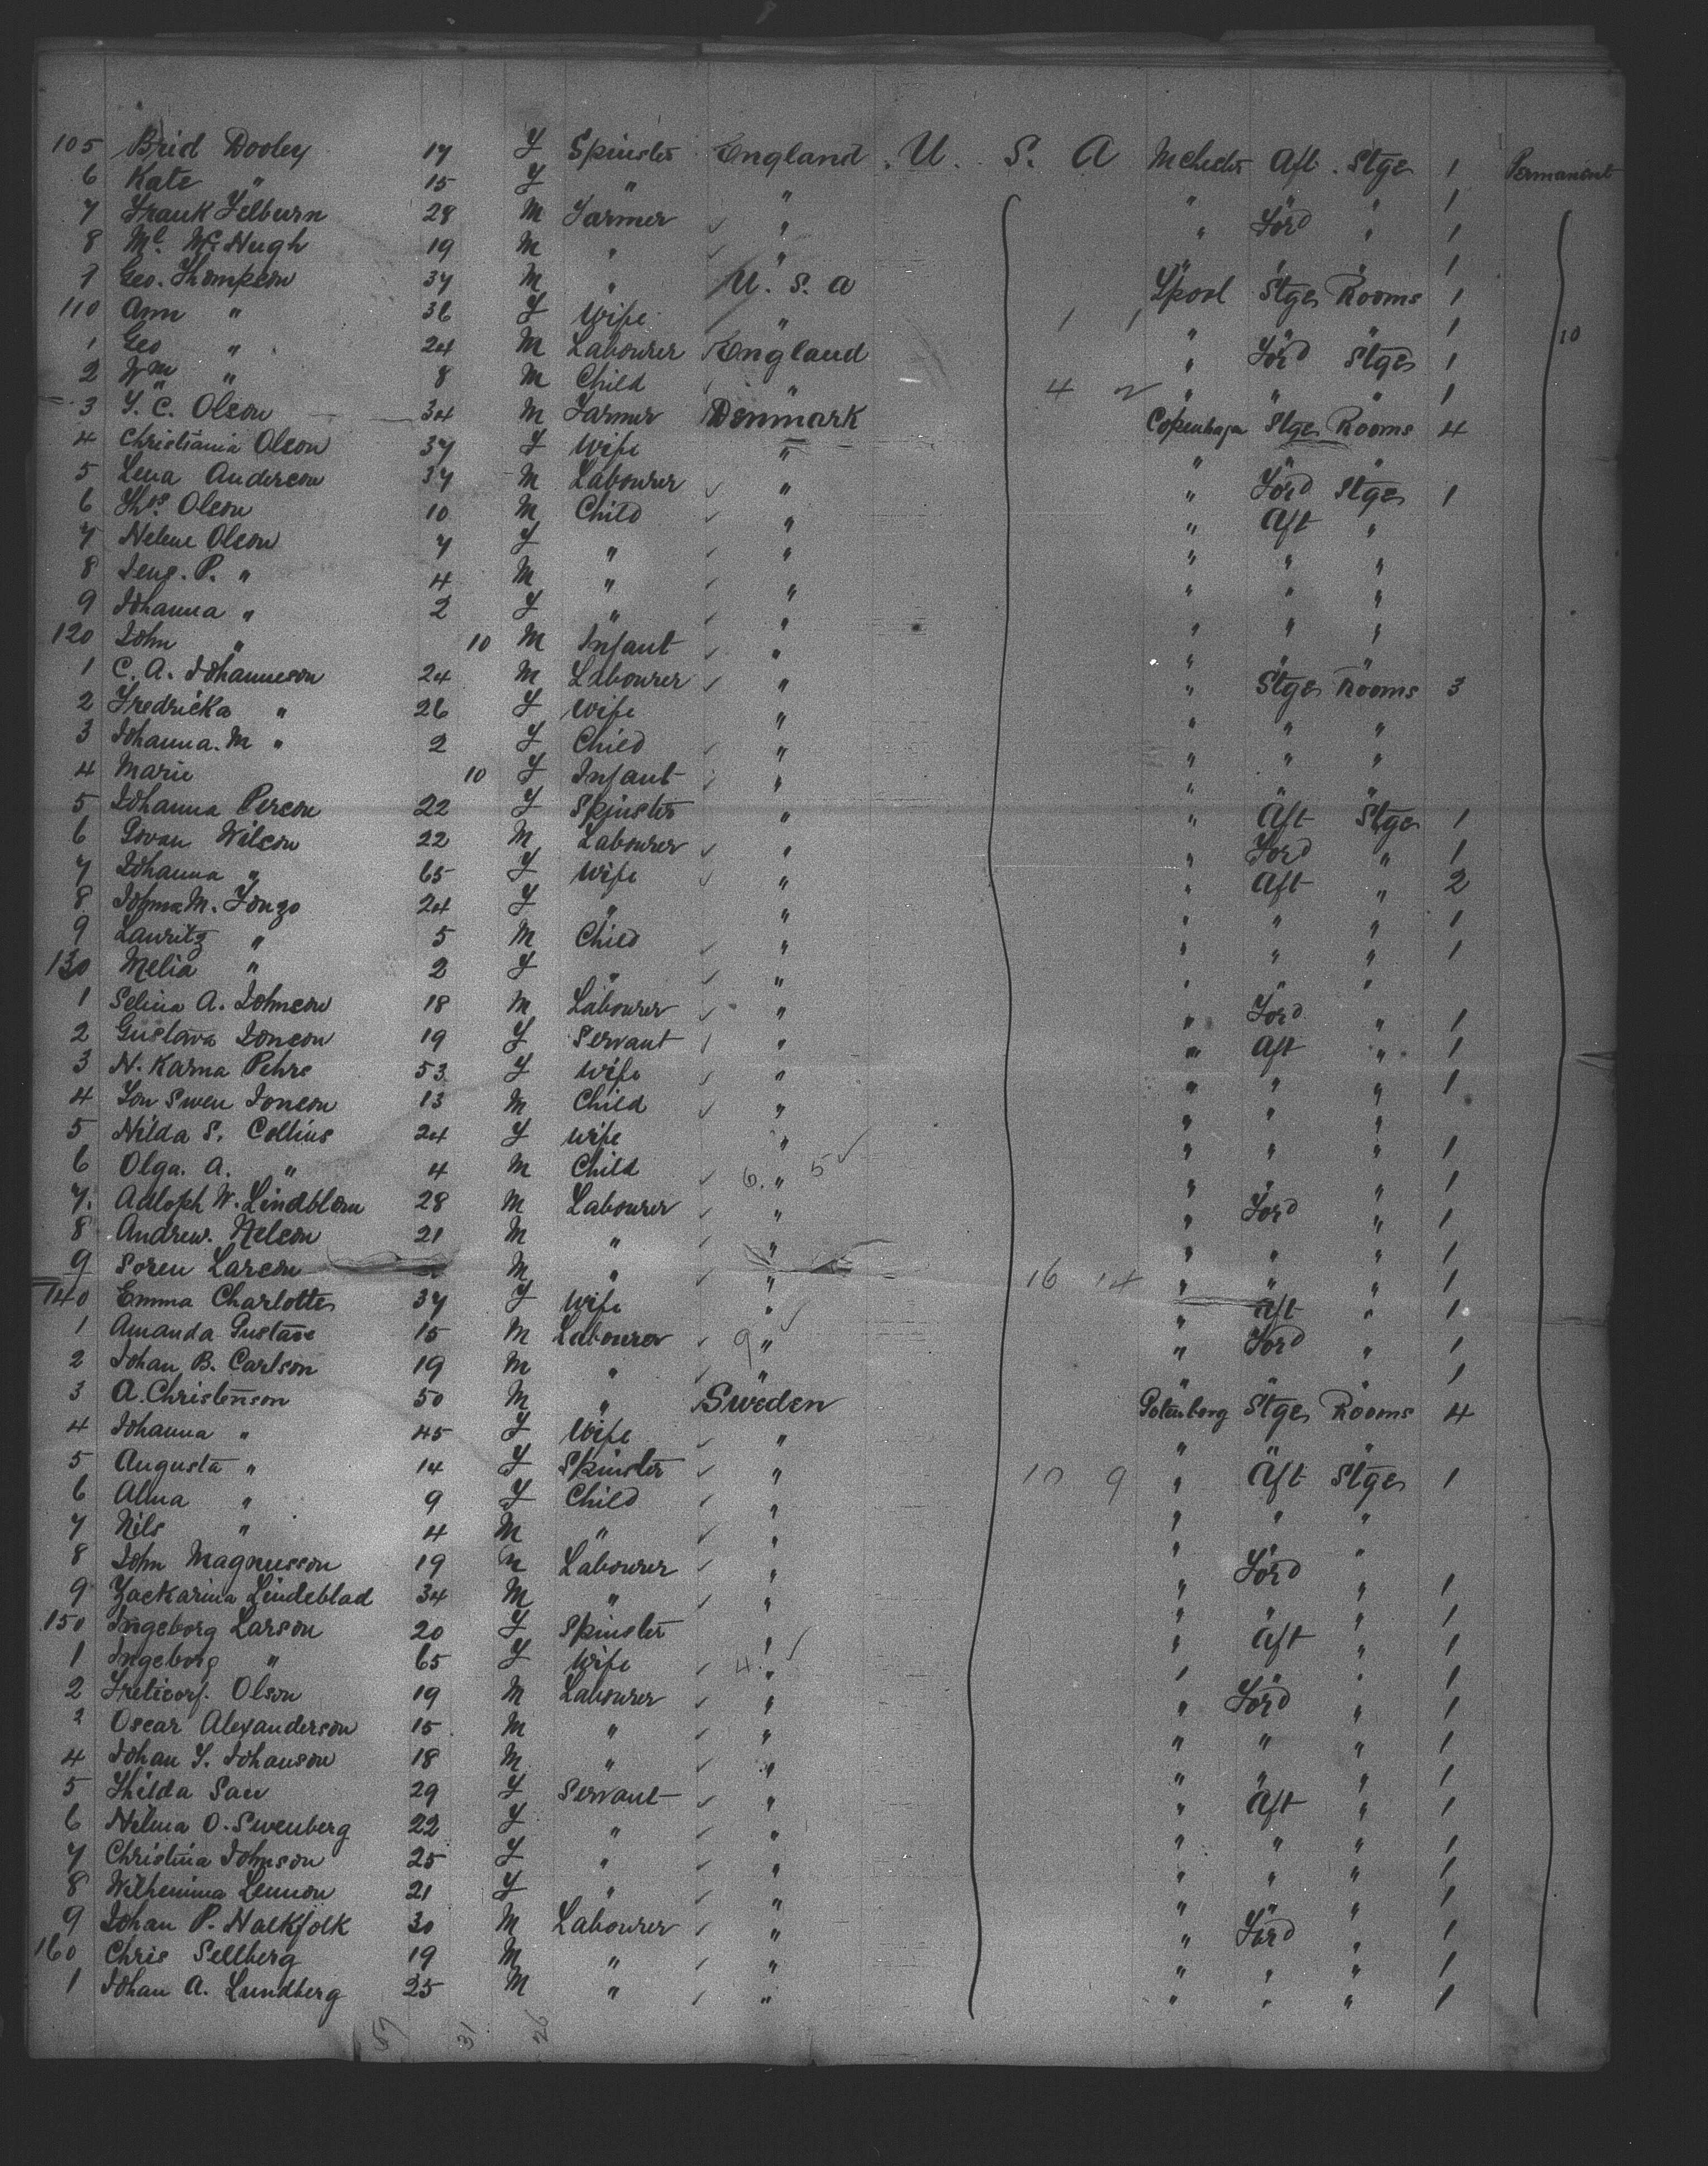 105 Brid Dooley 17 F Spinster England U. S. A Mchester Aft Stge 1 Permanent
6 Kate " 15 F " " " " " 1
7 Frank Felburn 28 M Farmer " " Ford " 1
8 Ml. McHugh 19 M " " " " " 1
9 Geo. Thompson 37 M " U. S. A Lpool Stge Rooms 1
110 Ann " 36 F Wife " 1 1 " " " 1 10
1 Geo " 24 M Labourer England " Ford Stge 1
2 Wm " 8 M Child " 4 2 " " " 1
3 F. C. Olson 34 M Farmer Denmark Copenhagen Stge Rooms 4
4 Christiania Olson 37 F Wife " " " "
5 Lena Anderson 37 M Labourer " " Ford Stge 1
6 Thos. Olson 10 M Child " " Aft "
7 Helene Olson 7 F " " " " "
8 Jens. P. " 4 M " " " " "
9 Johanna " 2 F " " " " "
120 John " 10 M Infant " " " "
1 C. A. Johanneson 24 M Labourer " " Stge Rooms 3
2 Fredricka " 26 F Wife " " " "
3 Johanna. M " 2 F Child " " " "
4 Marie 10 F Infant " " " "
5 Johanna Person 22 F Spinster " " Aft Stge 1
6 Govan Wilson 22 M Labourer " " Ford " 1
7 Johanna " 65 F Wife " " Aft " 2
8 M. 24 F " " " " " 1
9 Lauritz " 5 M Child " " " " 1
130 Melia " 2 F " " " " "
1 Selina A. Johnson 18 M Labourer " " Ford " 1
2 Gustava Jonson 19 F Servant " " Aft " 1
3 N. Karna Pehrs 53 F Wife " " " " 1
4 Jon Swen Jonson 13 M Child " " " "
5 Hilda S. Collins 24 F Wife " " " " 1
6 Olga. A. " 4 M Child 6. " 5 " " " 1
7. Adloph W. Lindblom 28 M Labourer " " Ford " 1
8 Andrew. Nelson 21 M " " " " " 1
9 Soren Larson M " " 16 14 " " " 1
140 Emma Charlotte 37 F Wife " " Aft " 1
1 Amanda Gustave 15 M Labourer 9 " " Ford " 1
2 Johan B. Carlson 19 M " " " " " 1
3 A. Christenson 50 M " Sweden Gotenborg Stge Rooms 4
4 Johanna " 45 F Wife " " " "
5 Augusta " 14 F Spinster " 10 9 " Aft Stge 1
6 Alma " 9 F Child " " " "
7 Nils " 4 M " " " " "
8 John Magnusson 19 M Labourer " " Ford " 1
9 Zackarina Lindeblad 34 M " " " " " 1
150 Ingeborg Larson 20 F Spinster " " Aft " 1
1 Ingeborg " 65 F Wife 4. " " " " 1
2 Olson 19 M Labourer " " Ford " 1
3 Oscar Alexanderson 15 M " " " " " 1
4 Johan F. Johanson 18 M " " " " " 1
5 Thilda San 29 F Servant " " Aft " 1
6 Helma O. Swenberg 22 F " " " " " 1
7 Christina Johnson 25 F " " " " " 1
8 Wilhemina Lennon 21 F " " " " " 1
9 Johan P. Halkfolk 30 M Labourer " " Ford " 1
160 Chris Sellberg 19 M " " " " " 1
1 Johan A. Lundberg 25 M " " " " " 1
59 31 26